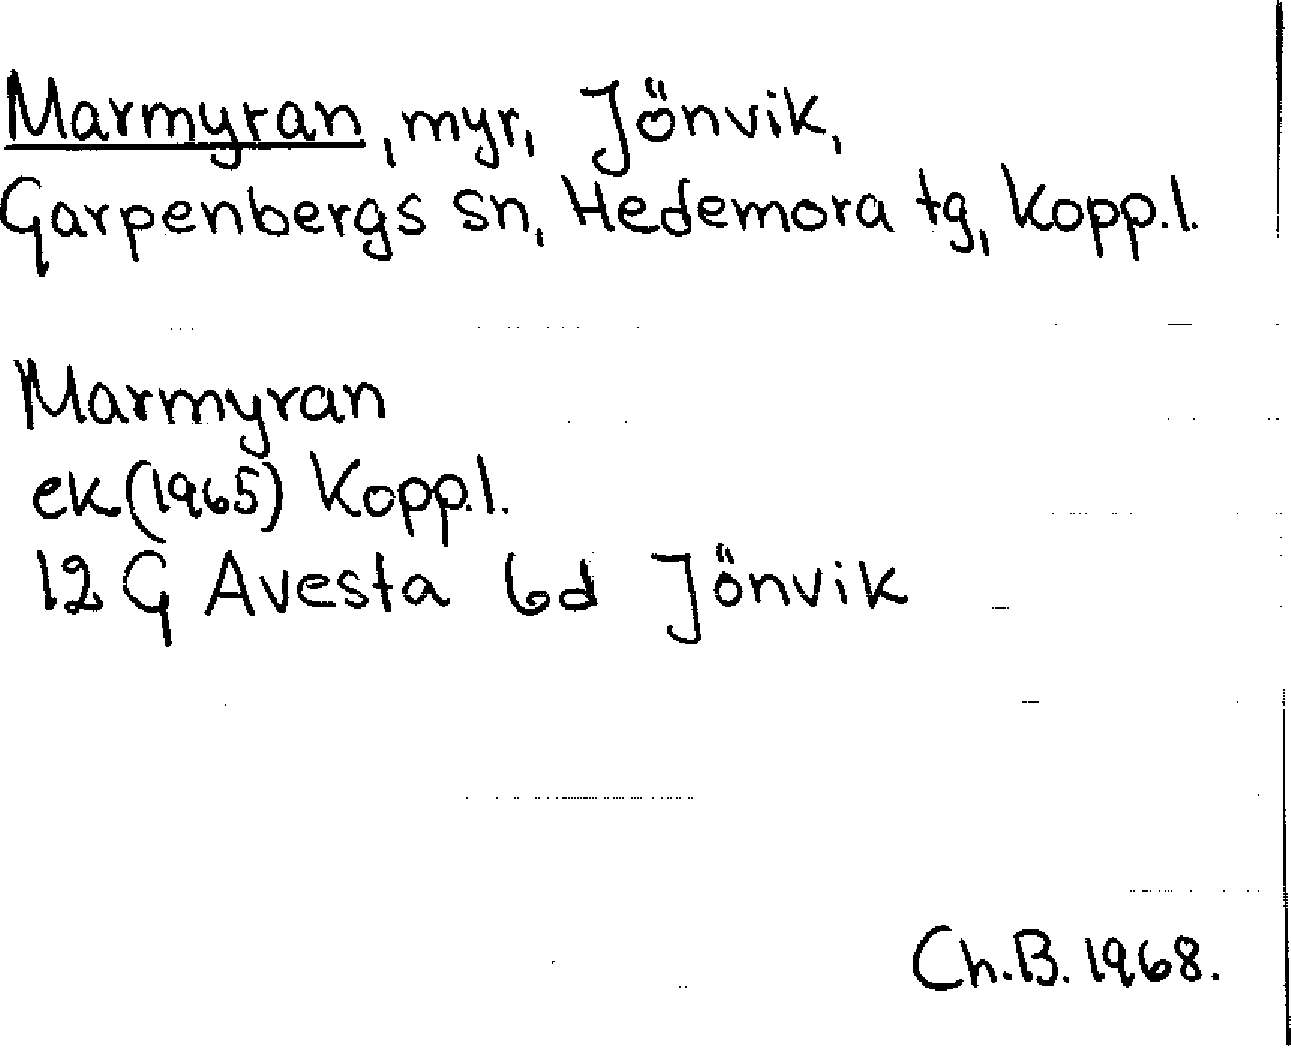 Marmyran, myr, Jönvik,
Garpenbergs sn, Hedemora tg, Kopp.l.
Marmyran
ek (1965) Kopp.l.
12 G Avesta 6d Jönvik
Ch.B. 1968.